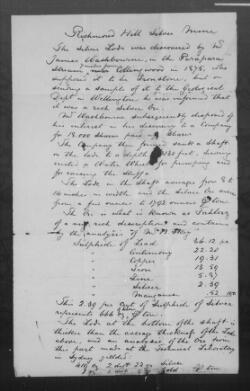 Richmond Hill Silver Mine
The Silver Lode was discovered by Mr
James Washbourne, in the Parapara
Collingwood in 1878. He
supposed it to be Ironstone, but on
sending a sample of it to the Geological
Dept in Wellington he was informed that
it was a rich Silver Ore.
Mr Washbourne subsequently disposed of
his interest in the discovery to a Company
for 18.000 Shares
The Company then formed sunk a Shaft
on the Lode to a depth of feet, having
a Water for pumping and
for raising the Stuff.
The Lode in the Shaft averages from 8 to
inches in width, and the Silver Ore assays
from a few ounces to 1792 ounces ton.
The Ore is what is known as
of a very rich description and contains
by the analysis of Mr
Sulphide of Lead 36.12
" Antimony 22.20
" Copper 19.31
" Iron 13.59
" Zinc 5.87
" Silver 2.39
" Manganese .52
The 2.39 per Cent of Sulphide of Silver
represents ton.
The Lode at the bottom of the Shaft is
thicker than the average thickness of the Lode
above, and an analysis of the Ore from
this part made at the Technical Laboratory
in Sydney yields:
22 Silver
Gold ton